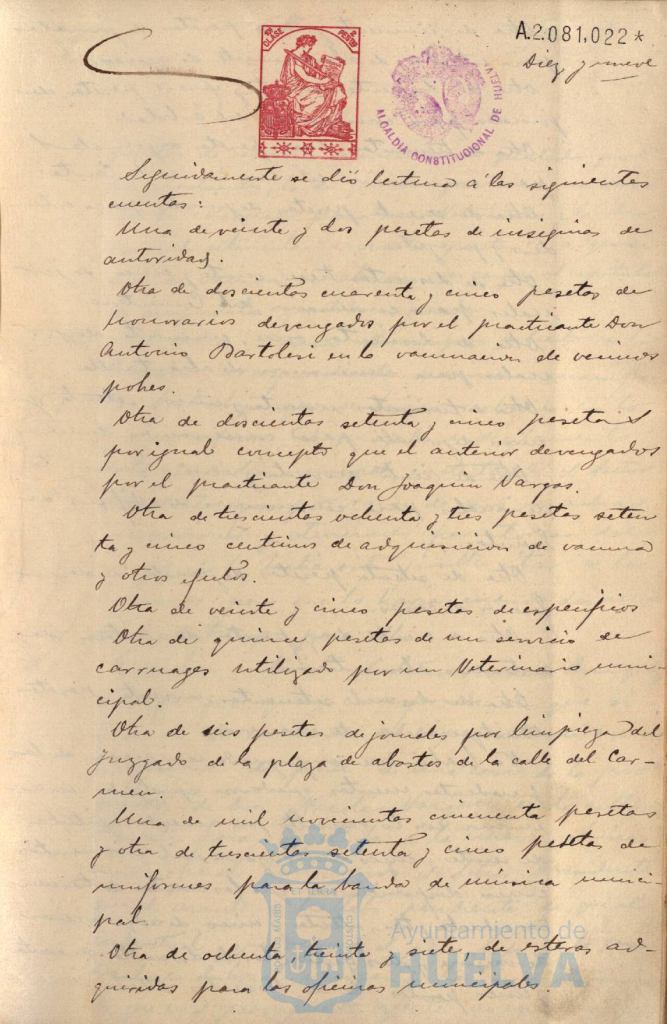 A.2.081,022*
Diez y nueve
10ª CLASE
2 PESETAS
ALCALDIA CONSTITUCIONAL DE HUELVA
Seguidamente se dió lectura á las siguientes
cuentas:
Una de veinte y dos pesetas de insignias de
autoridad.
Otra de doscientas cuarenta y cinco pesetas de
honorarios devengados por el practicante Don
Antonio Bartolesi en la vacunacion de vecinos
pobres.
Otra de doscientas setenta y cinco pesetas
por igual concepto que el anterior devengados
por el practicante Don Joaquin Vargas.
Otra de trescientas ochenta y tres pesetas seten
ta y cinco centimos de adquisicion de vacuna
y otros efectos.
Otra de veinte y cinco pesetas de especificos
Otra de quince pesetas de un servicio de
carruages utilizado por un Veterinario muni-
cipal.
Otra de seis pesetas de jornales por limpieza del
juzgado de la plaza de abastos de la calle del Car-
men.
Una de mil novecientas cincuenta pesetas
y otra de trescientas setenta y cinco pesetas de
uniformes para la banda de música munici-
pal.
Otra de ochenta, treinta y siete, de esteras ad-
quiridas para las oficinas municipales.
Ayuntamiento de
HUELVA